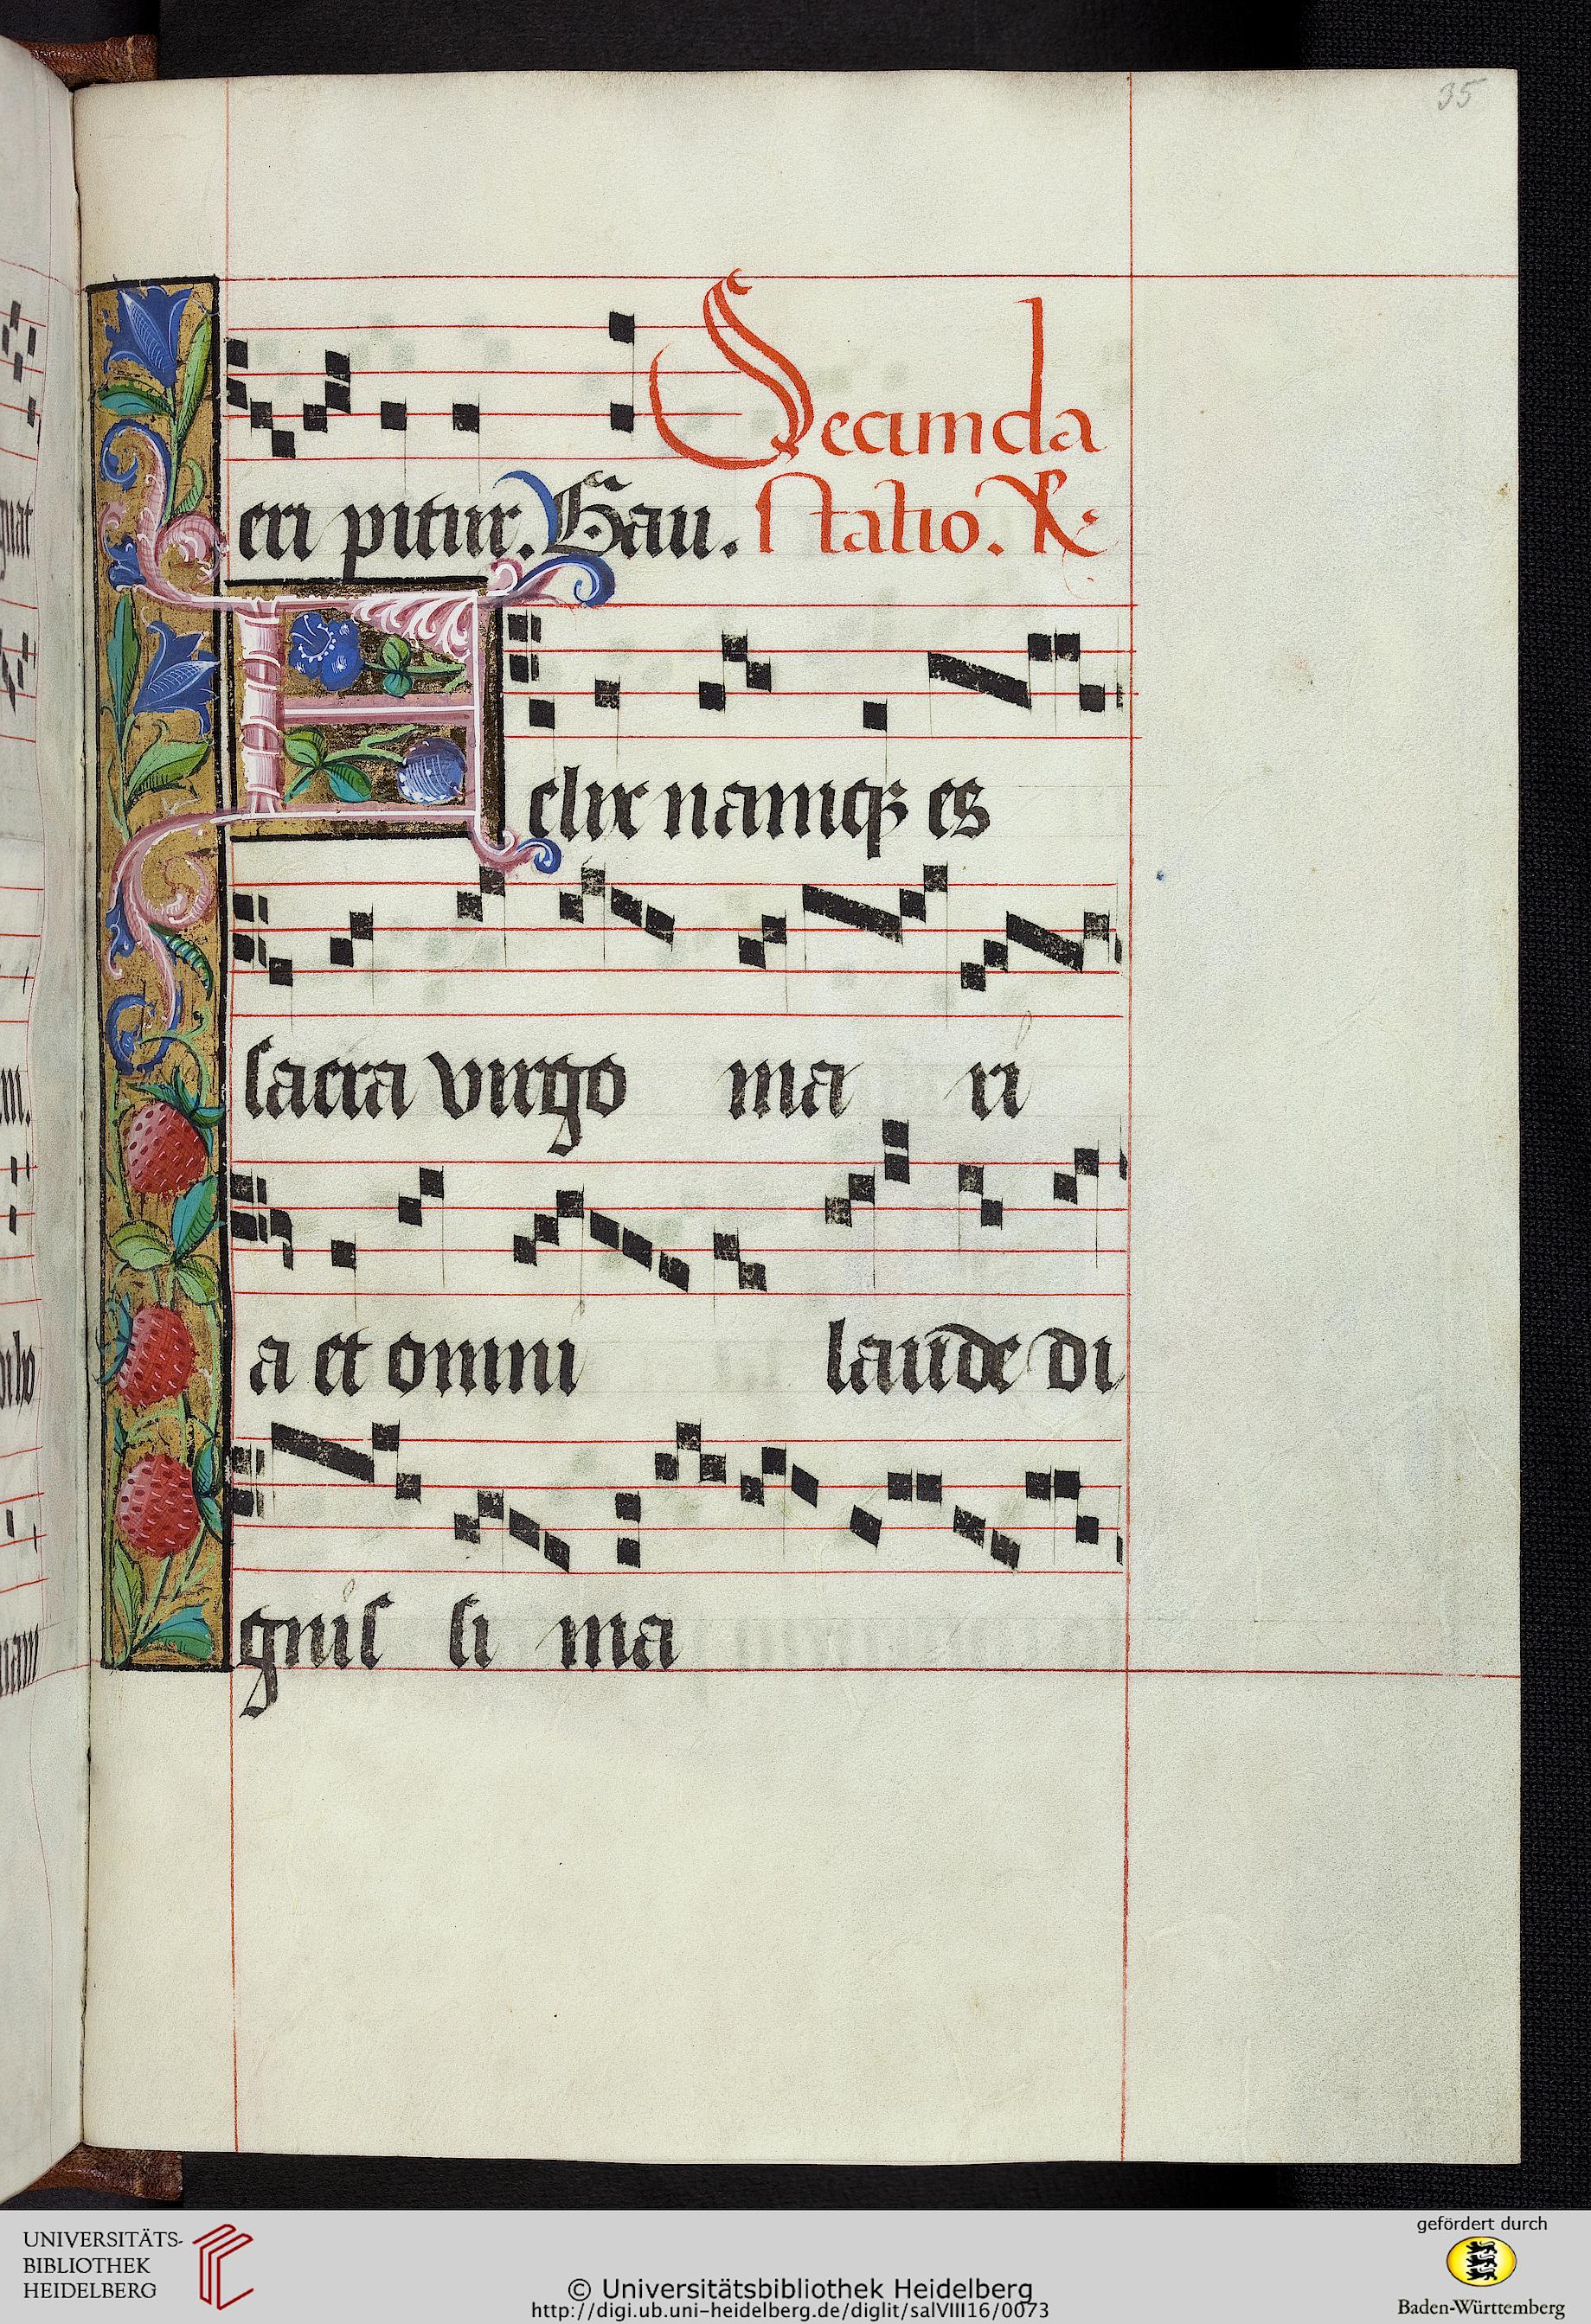 35
Secunda
eri pitur. Gau. statio. R
Felix namq3 es
sacra virgo ma ri
a et omni laude di
gnis si ma
UNIVERSITÄTS-
BIBLIOTHEK
HEIDELBERG
© Universitätsbibliothek Heidelberg
http://digi.ub.uni-heidelberg.de/diglit/salVIII16/0073
gefördert durch
Baden-Württemberg